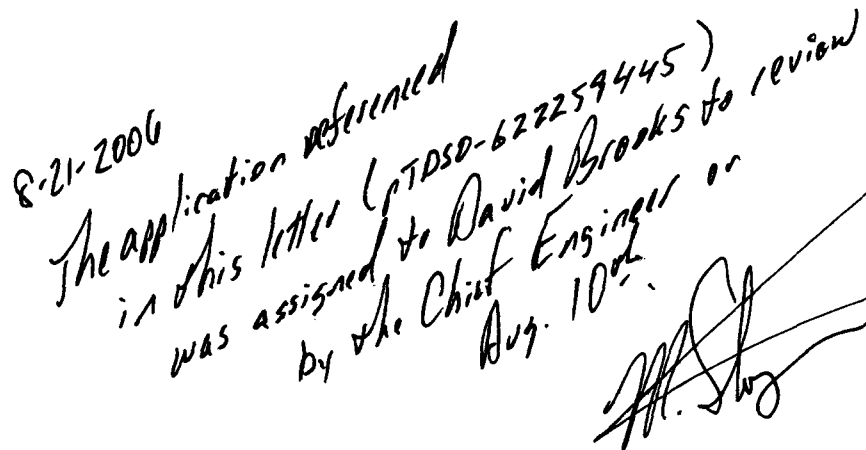 8-21-2006
The application referenced
in this letter (pTDSO-622259445)
was assigned to David Brooks to review
by the Chief Engineer on
Aug. 10th.
M.